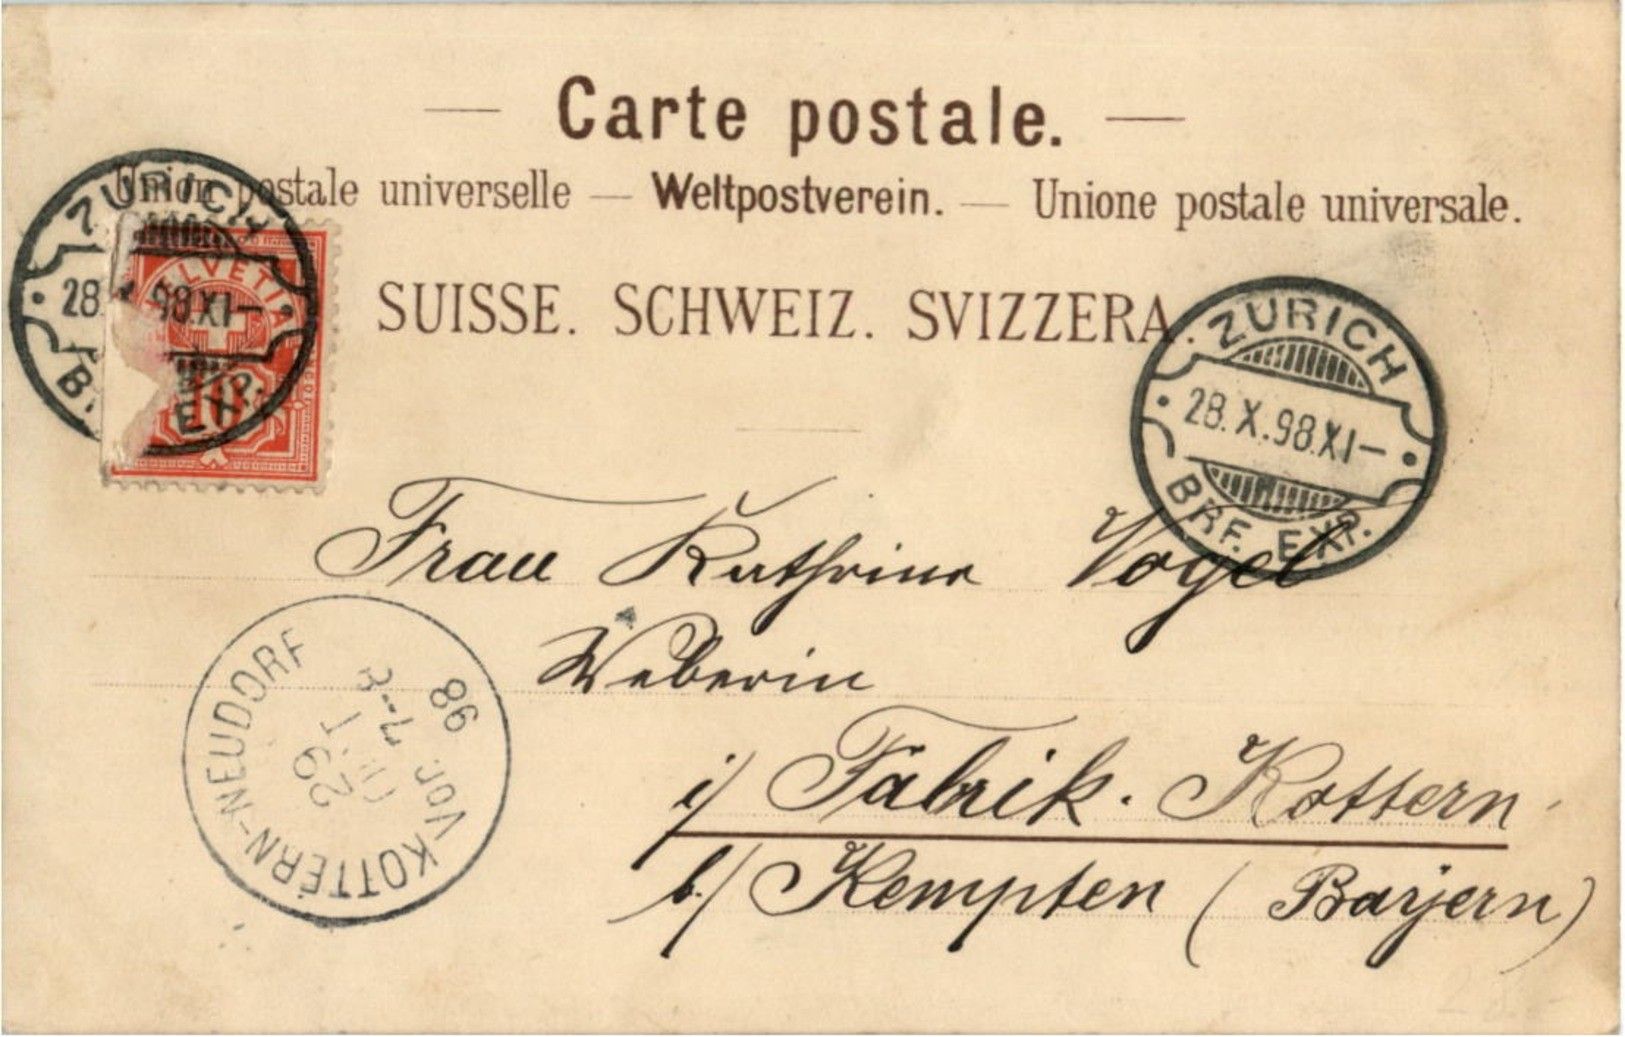 Carte postale.
Union postale universelle — Weltpostverein. — Unione postale universale.
SUISSE. SCHWEIZ. SVIZZERA.
ZÜRICH
28. 98.XI–
EXP.
HELVETIA
10
ZÜRICH
28.X.98.XI–
BRF. EXP.
Frau Kathrina Vogel
Weberin
i/ Fabrik. Kottern
b./ Kempten (Bayern)
KOTTERN-NEUDORF
29
Vor.
98